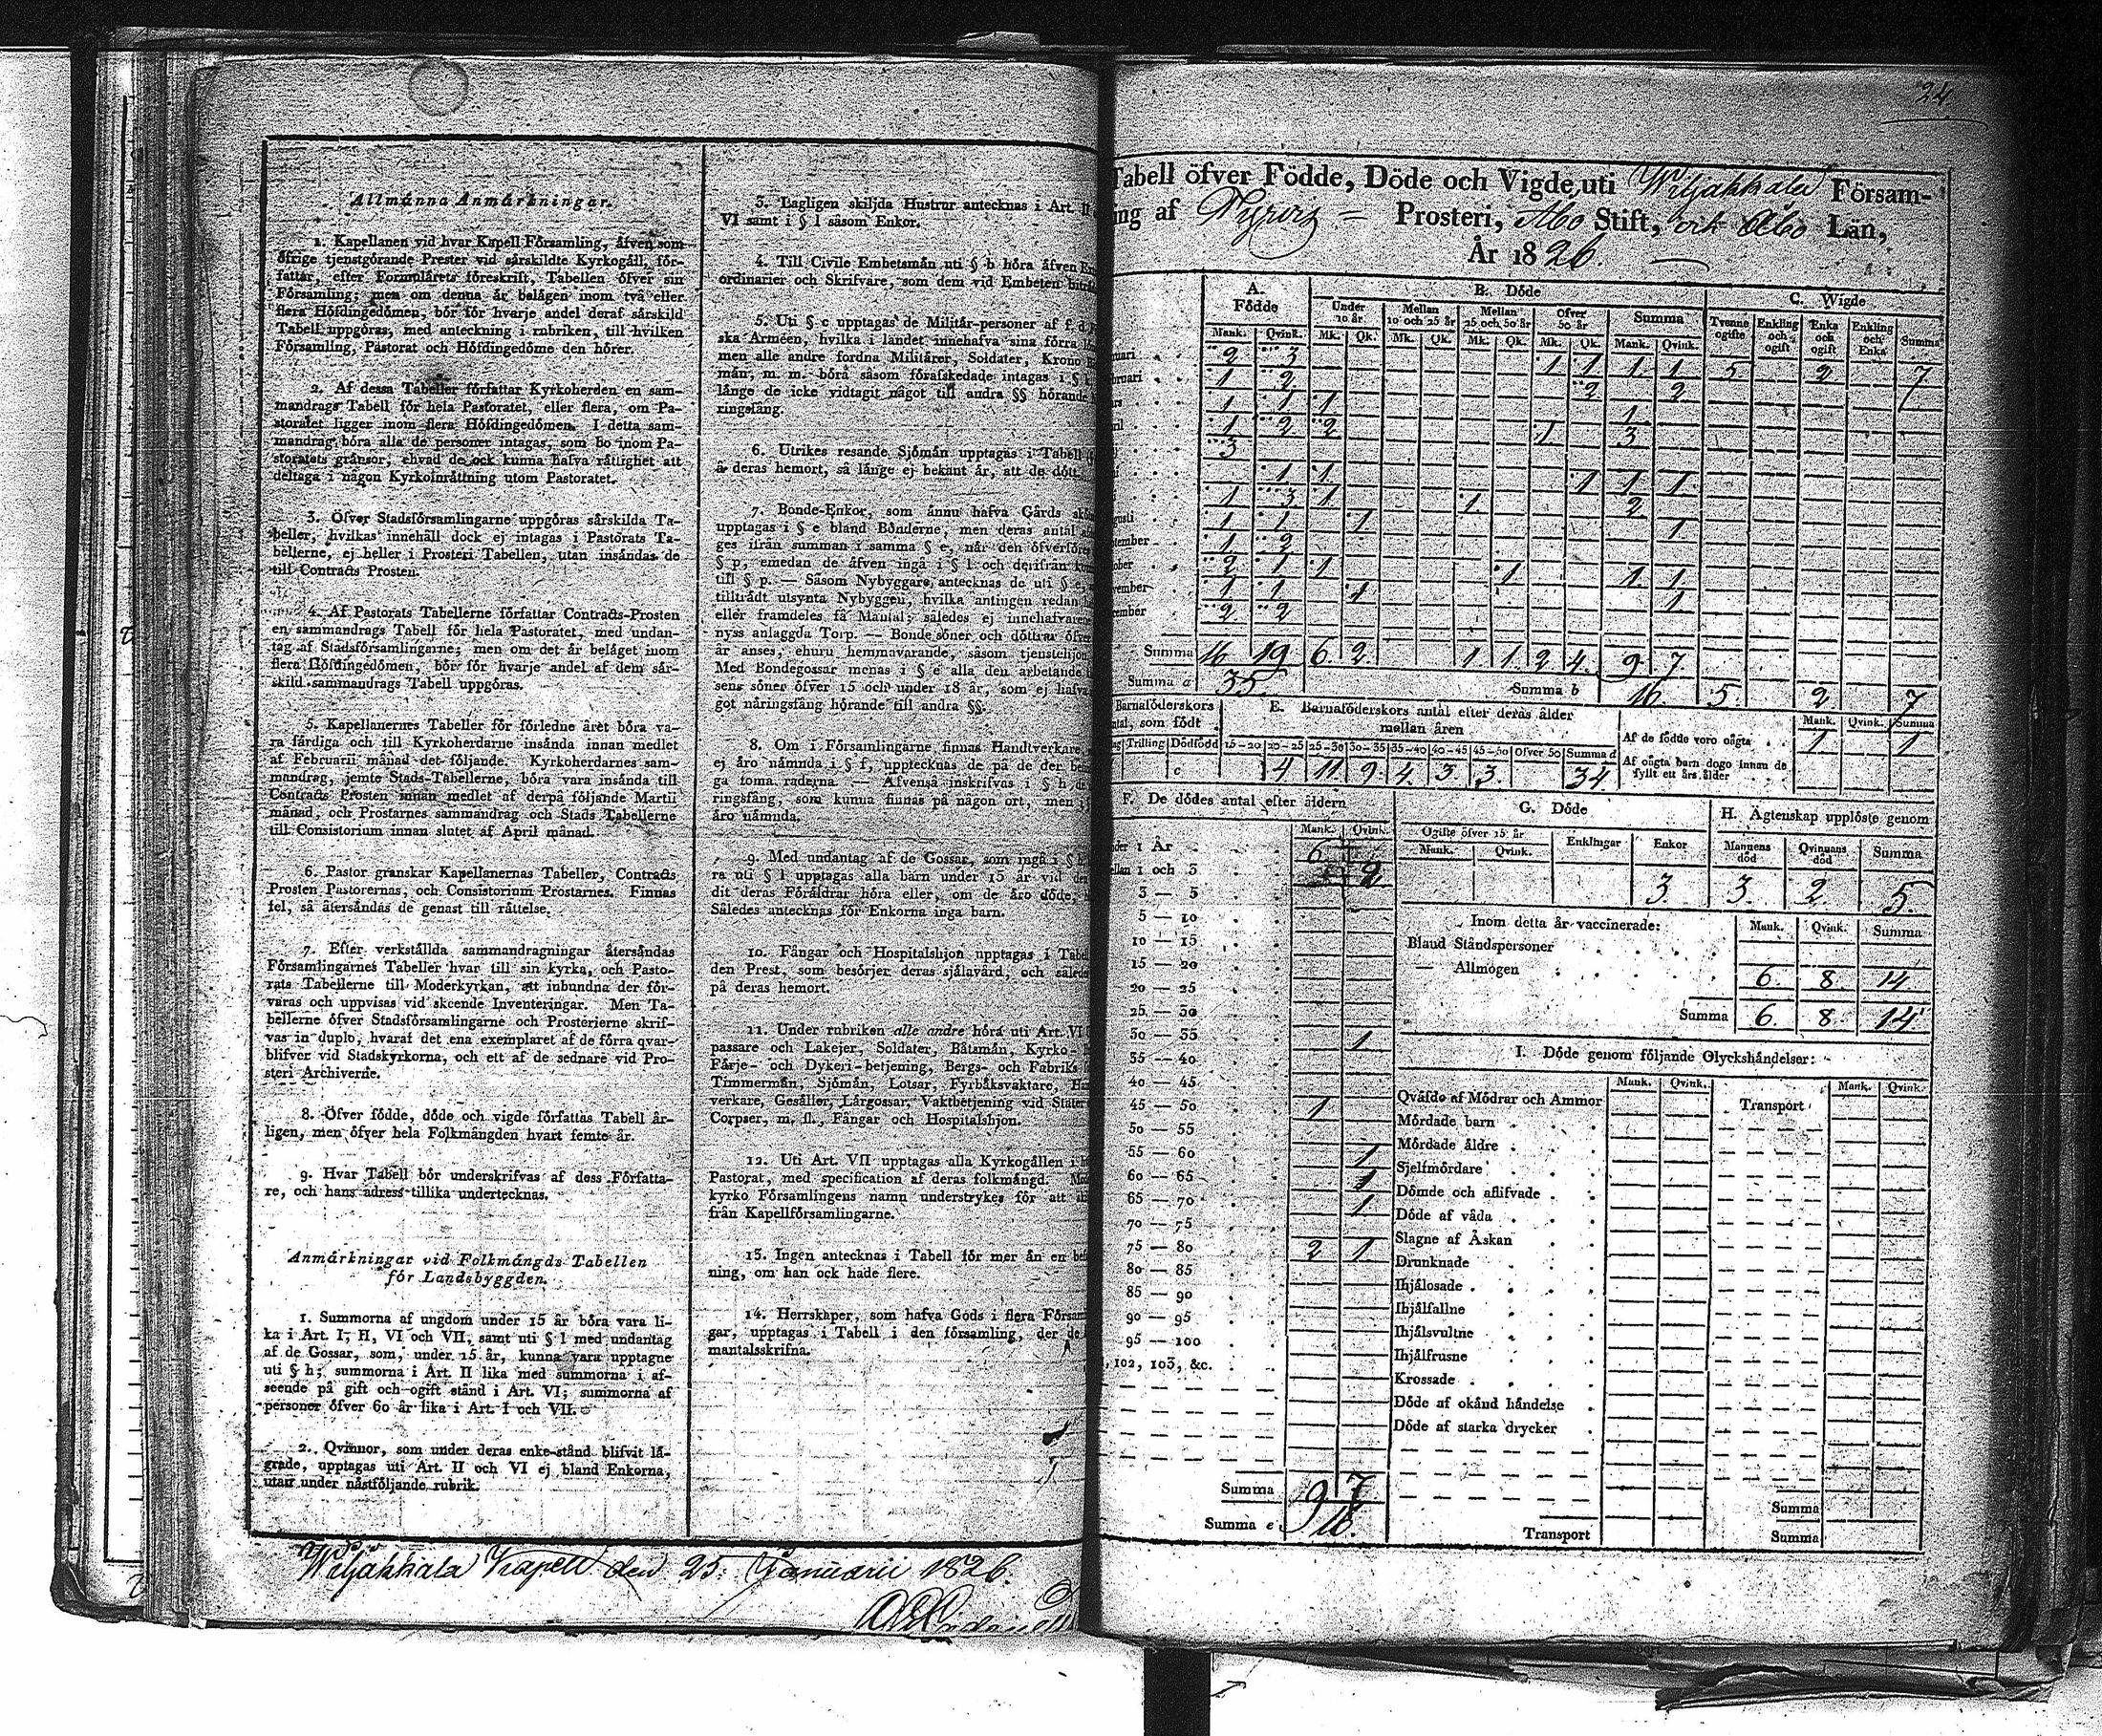 Allmänna Anmärkningar.
1. Kapellanen vid hvar Kapell Församling, äfven som
öfrige tjenstgörande Prester vid särskildte Kyrkogäll, för-
fattar, efter Formulärets föreskrift, Tabellen öfver sin
Församling; men om denna är belägen inom två eller
flera Höfdingedömen, bör för hvarje andel deraf särskild
Tabell uppgöras, med anteckning i rubriken, till hvilken
Församling, Pastorat och Höfdingedöme den hörer.
2. Af dessa Tabeller författar Kyrkoherden en sam-
mandrags Tabell för hela Pastoratet, eller flera, om Pa-
storatet ligger inom flera Höfdingedömen. I detta sam-
mandrag böra alla de personer intagas, som bo inom Pa-
storatets gränsor, ehvad de ock kunna hafva rättighet att
deltaga i någon Kyrkoinrättning utom Pastoratet.
3. Öfver Stadsförsamlingarne uppgöras särskilda Ta-
beller, hvilkas innehåll dock ej intages i Pastorats Ta-
bellerne, ej heller i Prosteri Tabellen, utan insändas de
till Contracts Prosten.
4. Af Pastorats Tabellerne författar Contracts-Prosten
en sammandrags Tabell för hela Pastoratet, med undan-
tag af Stadsförsamlingarne; men om det är beläget inom
flera Höfdingedömen, bör för hvarje andel af dem sär-
skild sammandrags Tabell uppgöras.
5. Kapellanernes Tabeller för förledne året böra va-
ra färdiga och till Kyrkoherdarne insända innan medlet
af Februarii månad det följande. Kyrkoherdarnes sam-
mandrag, jemte Stads-Tabellerne, böra vara insända till
Contracts Prosten innan medlet af derpå följande Martii
månad, och Prostarnes sammandrag och Stads Tabellerne
till Consistorium innan slutet af April månad.
6. Pastor granskar Kapellanernas Tabeller, Contracts
Prosten Pastorernas, och Consistorium Prostarnes. Finnas
fel, så återsändas de genast till rättelse.
7. Efter verkställda sammandragningar återsändas
Församlingarnes Tabeller hvar till sin kyrka, och Pasto-
rats Tabellerne till Moderkyrkan, att inbundna der för-
varas och uppvisas vid skeende Inventeringar. Men Ta-
bellerne öfver Stadsförsamlingarne och Prosterierne skrif-
vas in duplo, hvaraf det ena exemplaret af de förra qvar-
blifver vid Stadskyrkorna, och ett af de sednare vid Pro-
steri Archiverne.
8. Öfver födde, döde och vigde författas Tabell år-
ligen, men öfver hela Folkmängden hvart femte år.
9. Hvar Tabell bör underskrifvas af dess Författa-
re, och hans adress tillika undertecknas.
Anmärkningar vid Folkmängds-Tabellen
för Landsbyggden.
1. Summorna af ungdom under 15 år böra vara li-
ka i Art. I, II, VI och VII, samt uti § l med undantag
af de Gossar, som, under 15 år, kunna vara upptagne
uti § h; summorna i Art. II lika med summorna i af-
seende på gift och ogift stånd i Art. VI; summorna af
personer öfver 60 år lika i Art. I och VII.
2. Qvinnor, som under deras enke-stånd blifvit lä-
grade, upptagas uti Art. II och VI ej bland Enkorna,
utan under nästföljande rubrik.
3. Lagligen skiljda Hustrur antecknas i Art. II
VI samt i § l såsom Enkor.
4. Till Civile Embetsmän uti § b höra äfven
ordinarier och Skrifvare, som dem vid Embeten
5. Uti § c upptagas de Militär-personer af f. d.
ska Arméen, hvilka i landet innehafva sina förra
men alle andre fordna Militärer, Soldater, Krono
män, m. m. böra såsom förafskedade intagas i §
länge de icke vidtagit något till andra §§ hörande
ringsfång.
6. Utrikes resande Sjömän upptagas i Tabell
å deras hemort, så länge ej bekant är, att de dött.
7. Bonde-Enkor, som ännu hafva Gårds
upptagas i § e bland Bönderne, men deras antal
ges ifrån summan i samma § e, när den öfverföres
§ p, emedan de äfven ingå i § l och derifrån
till § p. — Såsom Nybyggare antecknas de uti § e,
tillträdt utsynta Nybyggen, hvilka antingen redan
eller framdeles få Mantal; således ej innehafvaren
nyss anlaggda Torp. — Bonde söner och döttrar öfver
år anses, ehuru hemmavarande, såsom tjenstehjon.
Med Bondegossar menas i § e alla den arbetande
sens söner öfver 15 och under 18 år, som ej hafva
got näringsfång hörande till andra §§.
8. Om i Församlingarne finnas Handtverkare,
ej äro nämnda i § f, upptecknas de på de der
ga toma raderna. — Äfvenså inskrifvas i § h
ringsfång, som kunna finnas på någon ort, men
äro nämnda.
9. Med undantag af de Gossar, som ingå i § h
ra uti § l upptagas alla barn under 15 år vid
dit deras Föräldrar höra eller, om de äro döde,
Således antecknas för Enkorna inga barn.
10. Fångar och Hospitalshjon upptagas i
den Prest, som besörjer deras själavård, och
på deras hemort.
11. Under rubriken alle andre höra uti Art. VI
passare och Lakejer, Soldater, Båtsmän, Kyrko-
Färje- och Dykeri-betjening, Bergs- och Fabriks
Timmermän, Sjömän, Lotsar, Fyrbåksvaktare,
verkare, Gesäller, Lärgossar, Vaktbetjening vid Stater
Corpser, m. fl., Fångar och Hospitalshjon.
12. Uti Art. VII upptagas alla Kyrkogällen i
Pastorat, med specification af deras folkmängd.
kyrko Församlingens namn understrykes för att
från Kapellförsamlingarne.
13. Ingen antecknas i Tabell för mer än en
ning, om han ock hade flere.
14. Herrskaper, som hafva Gods i flera Försam
gar, upptagas i Tabell i den församling, der de
mantalsskrifna.
Wiljakkala Kapell den 25 Januarii 1826.
24
Tabell öfver Födde, Döde och Vigde uti Wiljakkala Försam-
ing af Tyrvis = Prosteri, Åbo Stift, och Åbo Län,
År 1826.
A. Födde B. Döde C. Wigde
Under 10 år Mellan 10 och 25 år Mellan 25 och 50 år Öfver 50 år Summa Tvenne ogifte Enkling och ogift Enka och ogift Enkling och Enka Summa
Mank. Qvink. Mk. Qk. Mk. Qk. Mk. Qk. Mk. Qk. Mank. Qvink.
uari 2 3 1 1 1 1 5 2 7
bruari 1 2 2 2
1 1 1 1
1 2 2 1 3
3
1 1 1 1 1
1 3 1 1 2
gusti 1 1 1 1
ptember 1 2
tober 2 1 1 1 1 1
vember 1 1 1 1
cember 2 2
Summa 16 19 6 2 1 1 2 4 9 7
Summa a 35 Summa b 16 5 2 7
Barnaföderskors
antal, som födt
Trilling Dödfödd
c
E. Barnaföderskors antal efter deras ålder
mellan åren
15—20 20—25 25—30 30—35 35—40 40—45 45—50 Öfver 50 Summa d
4 11 9 4 3 3 34
Mank. Qvink. Summa
Af de födde voro oägta 1 1
Af oägta barn dogo innan de
fyllt ett års ålder
F. De dödes antal efter åldern
Mank. Qvink.
under 1 År 6
mellan 1 och 3 2
3 — 5
5 — 10
10 — 15
15 — 20
20 — 25
25 — 30
30 — 35 1
35 — 40
40 — 45
45 — 50 1
50 — 55
55 — 60 1
60 — 65 1
65 — 70 1
70 — 75
75 — 80 2 1
80 — 85
85 — 90
90 — 95
95 — 100
102, 103, &c.
Summa 9 7
Summa e 16.
G. Döde
Ogifte öfver 15 år Enklingar Enkor
Mank. Qvink.
3
H. Ägtenskap upplöste genom
Mannens död Qvinnans död Summa
3. 2. 5.
Inom detta år vaccinerade: Mank. Qvink. Summa
Bland Ståndspersoner
— Allmogen 6. 8. 14
Summa 6. 8. 14
I. Döde genom följande Olyckshändelser:
Mank. Qvink. Mank. Qvink.
Qväfde af Mödrar och Ammor Transport
Mördade barn
Mördade äldre
Sjelfmördare
Dömde och aflifvade
Döde af våda
Slagne af Åskan
Drunknade
Ihjälosade
Ihjälfallne
Ihjälsvultne
Ihjälfrusne
Krossade
Döde af okänd händelse
Döde af starka drycker
Summa
Transport Summa